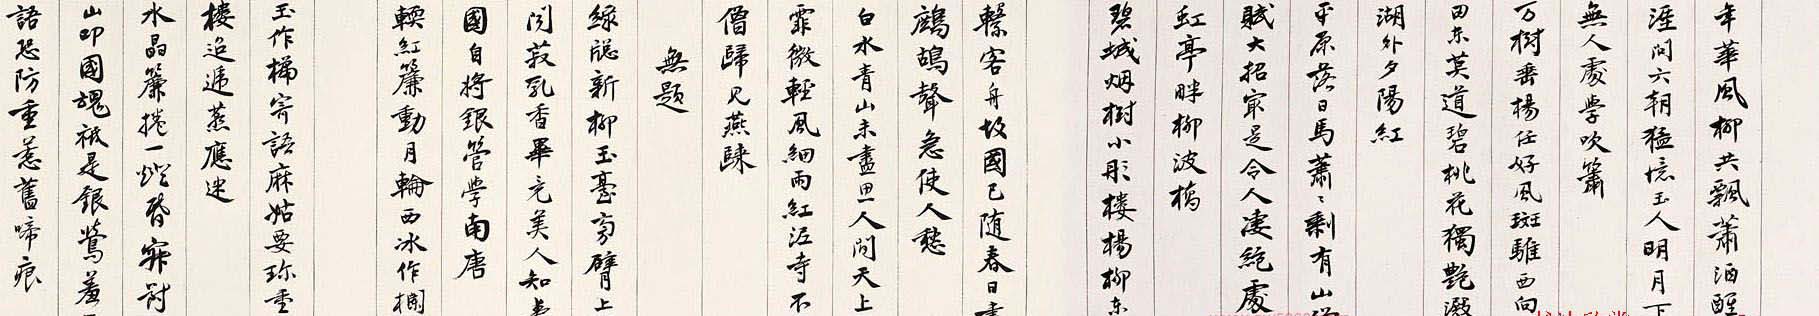 年華風柳共飄蕭酒醒
涯問六朝猛憶玉人明月下
無人處學吹簫
万樹垂楊任好風斑騅西向
田东莫道碧桃花獨艷澱
湖外夕陽紅
平原落日馬蕭々剩有山僧
賦大招最是令人凄絕處
虹亭畔柳波橋
碧城烟樹小彤樓楊柳东
繫客舟故國已随春日盡
鷓鴣聲急使人愁
白水青山未盡思人間天上
霏微輕風細雨紅泥寺不
僧歸見燕歸
無題
緑牎新柳玉臺旁臂上
聞菽乳香畢竟美人知
國自將銀管學南唐
輭紅簾動月輪西冰作欄
玉作梯寄語麻姑要珍重
樓迢遞燕應迷
水晶簾捲一燈昏寂對
山叩國魂祇是銀鶯羞
語恐防重惹舊啼痕